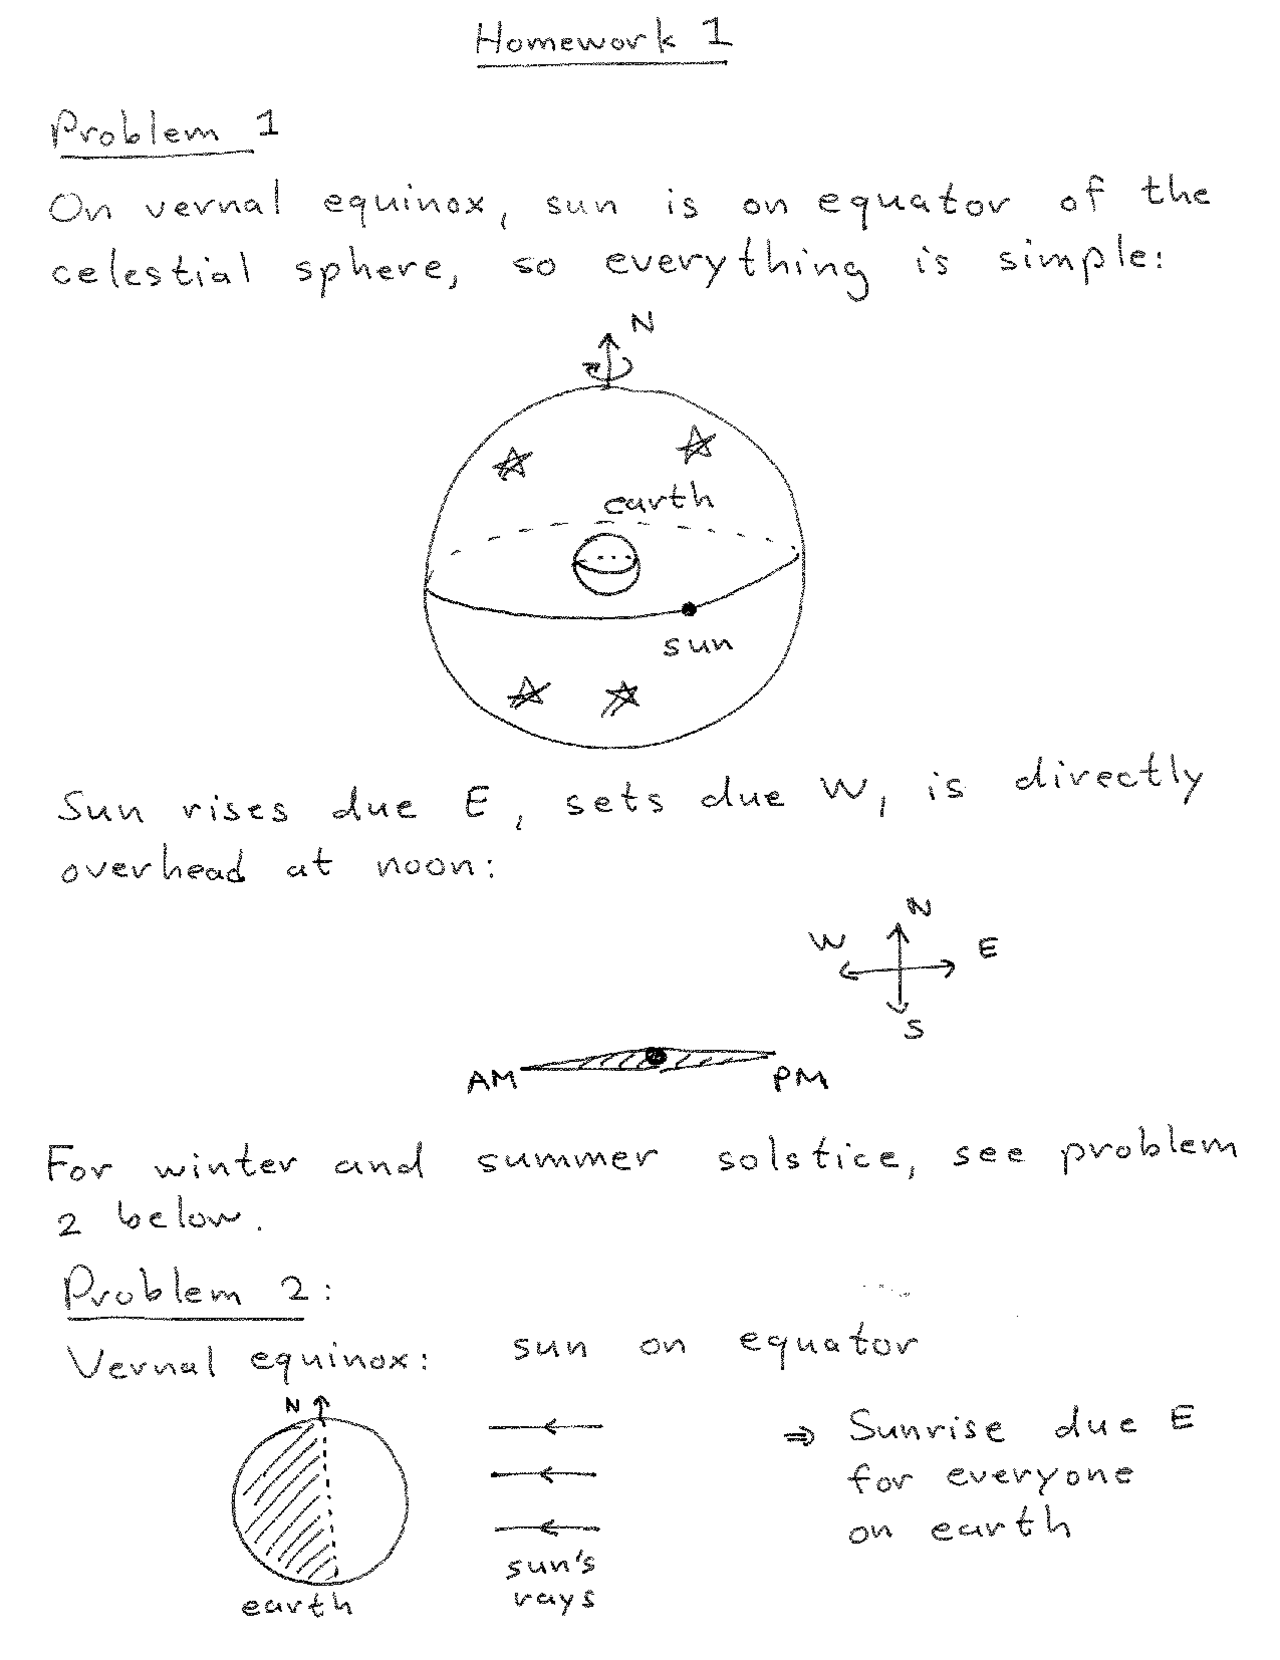 Homework 1
Problem 1
On vernal equinox, sun is on equator of the
celestial sphere, so everything is simple:
N
earth
sun
Sun rises due E, sets due W, is directly
overhead at noon:
N
W E
S
AM PM
For winter and summer solstice, see problem
2 below.
Problem 2:
Vernal equinox: sun on equator
N
⇒ Sunrise due E
for everyone
on earth
sun's
rays
earth